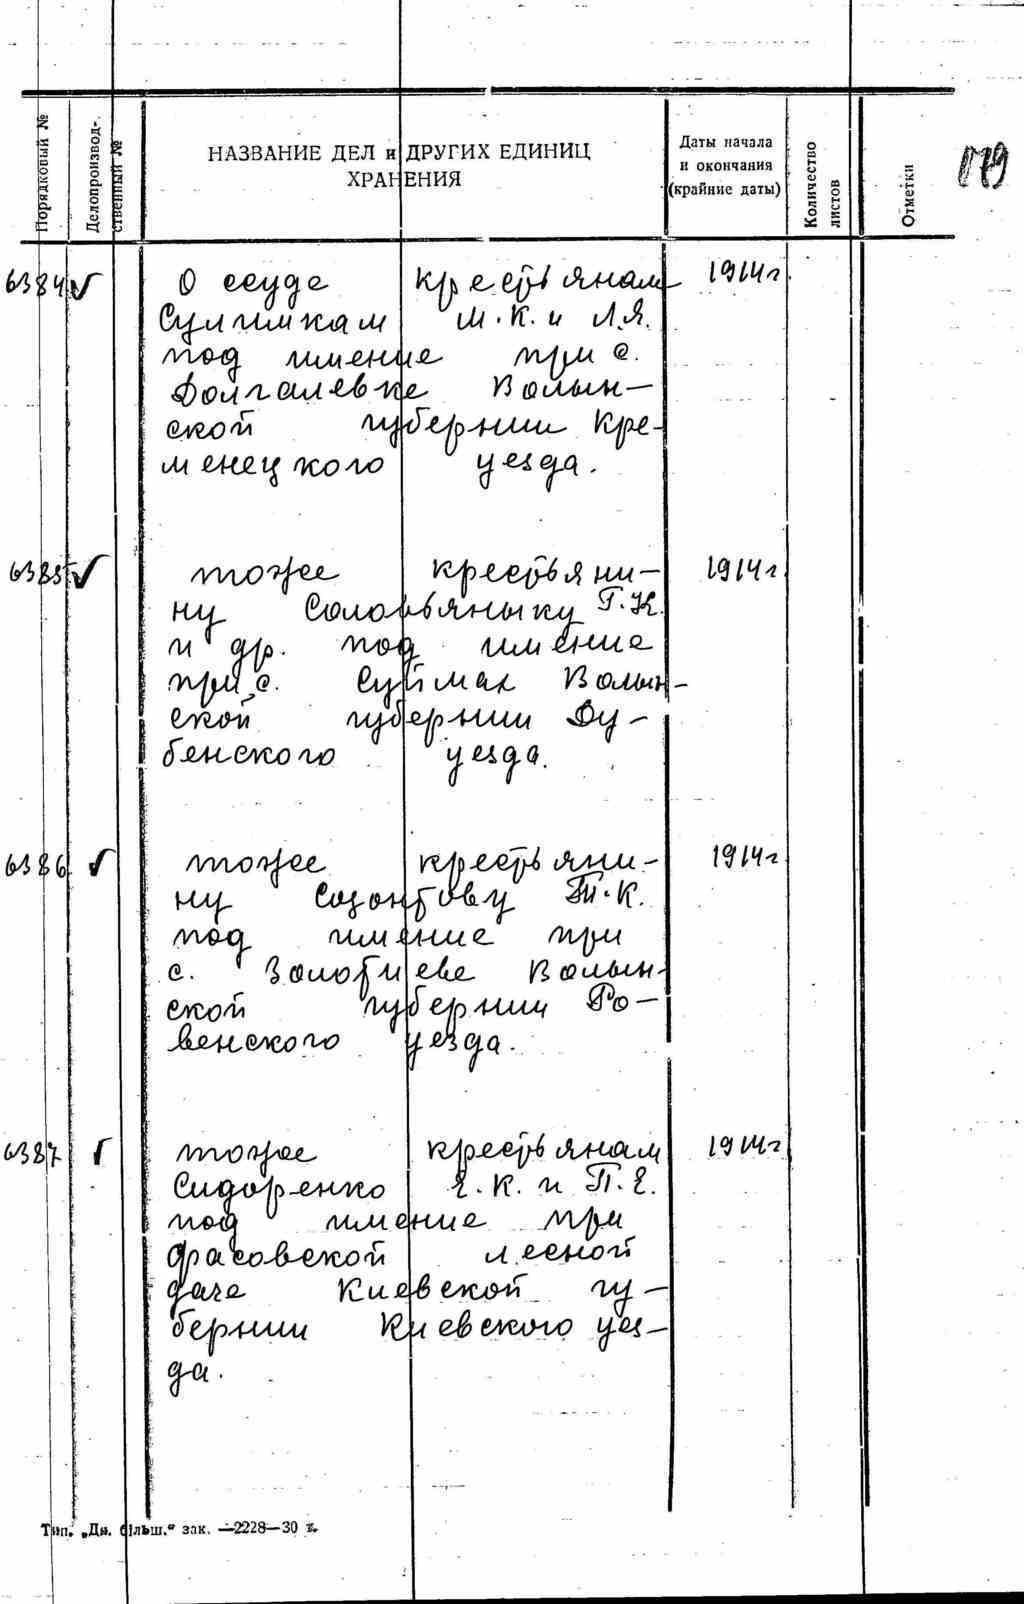 Порядковый №
Делопроизвод-
ственный №
НАЗВАНИЕ ДЕЛ и ДРУГИХ ЕДИНИЦ
ХРАНЕНИЯ
Даты начала
и окончания
(крайние даты)
Количество
листов
Отметки
879
6384 √ О ссуде крестьянам 1914г
Сулимкам М.К. и Л.Я.
под имение при с.
Долгалевке Волын-
ской губернии Кре-
менецкого уезда.
6385 √ тоже крестьяни- 1914г
ну Соловьяныку Г.К.
и др. под имение
при с. Суймах Волын-
ской губернии Ду-
бенского уезда.
6386 √ тоже крестьяни- 1914г
ну Созонтову Т.К.
под имение при
с. Золотиеве Волын-
ской губернии Ро-
венского уезда.
6387 √ тоже крестьянам 1914г
Сидоренко Я.К. и П.Е.
под имение при
Фасовской лесной
даче Киевской гу-
бернии Киевского уез-
да.
Тип. „Дн. більш.“ зак. —2228—30 т.